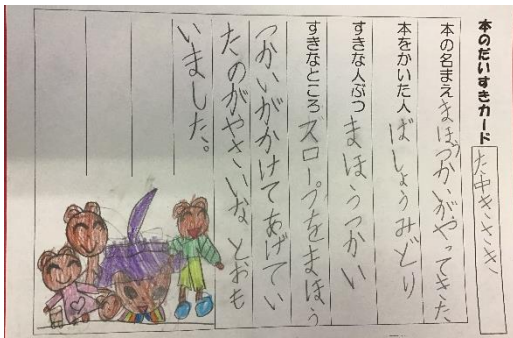 本のだいすきカード
た中きさき
本の名まえ まほうつかいがやってきた
本をかいた人 ばしょうみどり
すきな人ぶつ まほうつかい
すきなところ スロープをまほう
つかいがかけてあげてい
たのがやさいなとおも
いました。